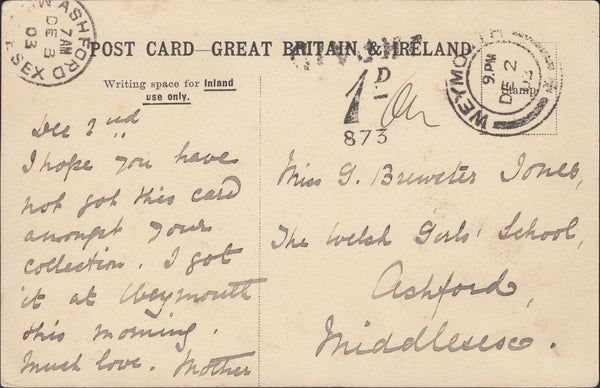 ASHFORD
7AM
DE 3
03
POST CARD—GREAT BRITAIN & IRELAND
WEYMOUTH
9.PM
DE 2
Stamp
Writing space for Inland
use only.
1D.
873
Dec 2nd
I hope you have
not got this card
amongst your
collection. I got
it at Weymouth
this morning.
Much love. Mother
Miss G. Brewster Jones,
The Welsh Girls' School,
Ashford,
Middlesex.